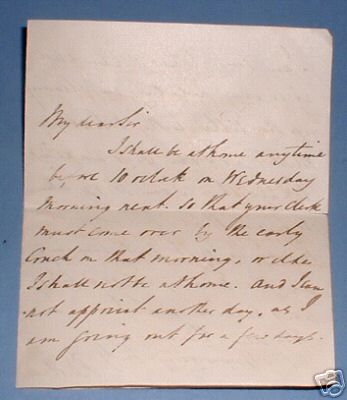 My dear Sir
I shall be at home anytime
before 10 oclock on Wednesday
morning next. so that your clerk
must come over by the early
Coach on that morning, or else
I shall not be at home. and I can
not appoint another day, as I
am going out for a few days.